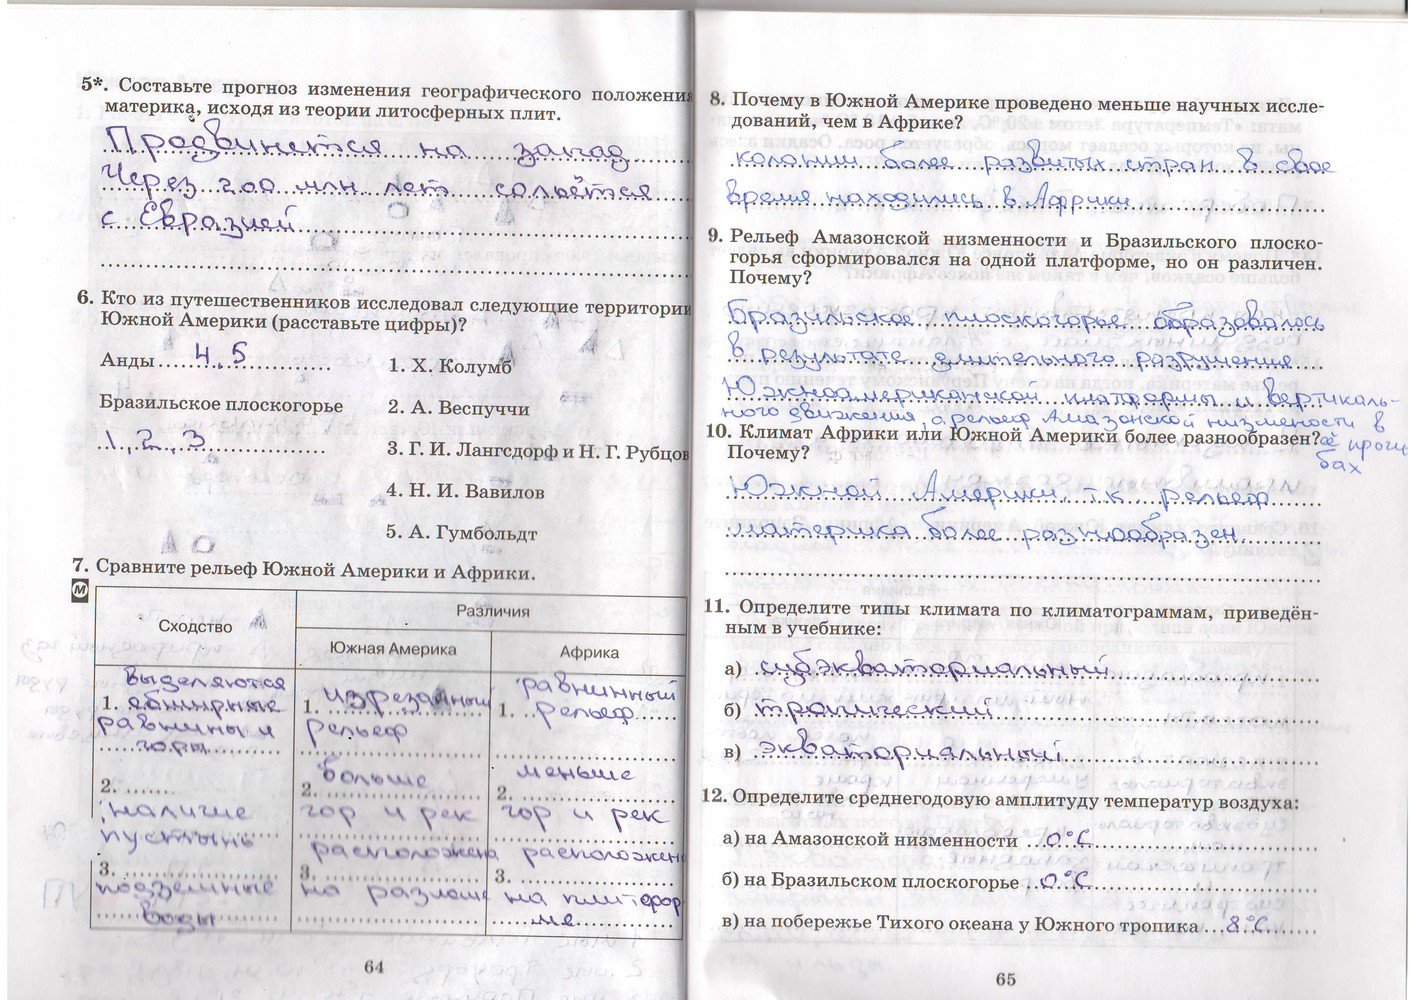 5*. Составьте прогноз изменения географического положения
материка, исходя из теории литосферных плит.
Продвинется на запад
Через 200 млн лет сольётся
с Евразией
6. Кто из путешественников исследовал следующие территории
Южной Америки (расставьте цифры)?
Анды 4, 5
1. Х. Колумб
Бразильское плоскогорье
2. А. Веспуччи
1, 2, 3
3. Г. И. Лангсдорф и Н. Г. Рубцов
4. Н. И. Вавилов
5. А. Гумбольдт
7. Сравните рельеф Южной Америки и Африки.
М
Сходство
Различия
Южная Америка
Африка
выделяются
1. обширные
равнины и
горы
2.
наличие
пустынь
3.
подземные
воды
1. изрезанный
рельеф
больше
2.
гор и рек
расположена
3.
на разломе
равнинный
1. рельеф
меньше
2.
гор и рек
расположен
3.
на платфор
ме
64
8. Почему в Южной Америке проведено меньше научных иссле-
дований, чем в Африке?
колонии более развитых стран в свое
время находились в Африки
9. Рельеф Амазонской низменности и Бразильского плоско-
горья сформировался на одной платформе, но он различен.
Почему?
Бразильское плоскогорье образовалось
в результате длительного разрушения
Южноамериканской платформы и вертикаль-
ного движения, а рельеф Амазонской низмености в
её проги
бах
10. Климат Африки или Южной Америки более разнообразен?
Почему?
Южной Америки, т.к рельеф
материка более разнообразен
11. Определите типы климата по климатограммам, приведён-
ным в учебнике:
а) субэкваториальный
б) тропический
в) экваториальный
12. Определите среднегодовую амплитуду температур воздуха:
а) на Амазонской низменности 0°С
б) на Бразильском плоскогорье 0°С
в) на побережье Тихого океана у Южного тропика 8°С
65